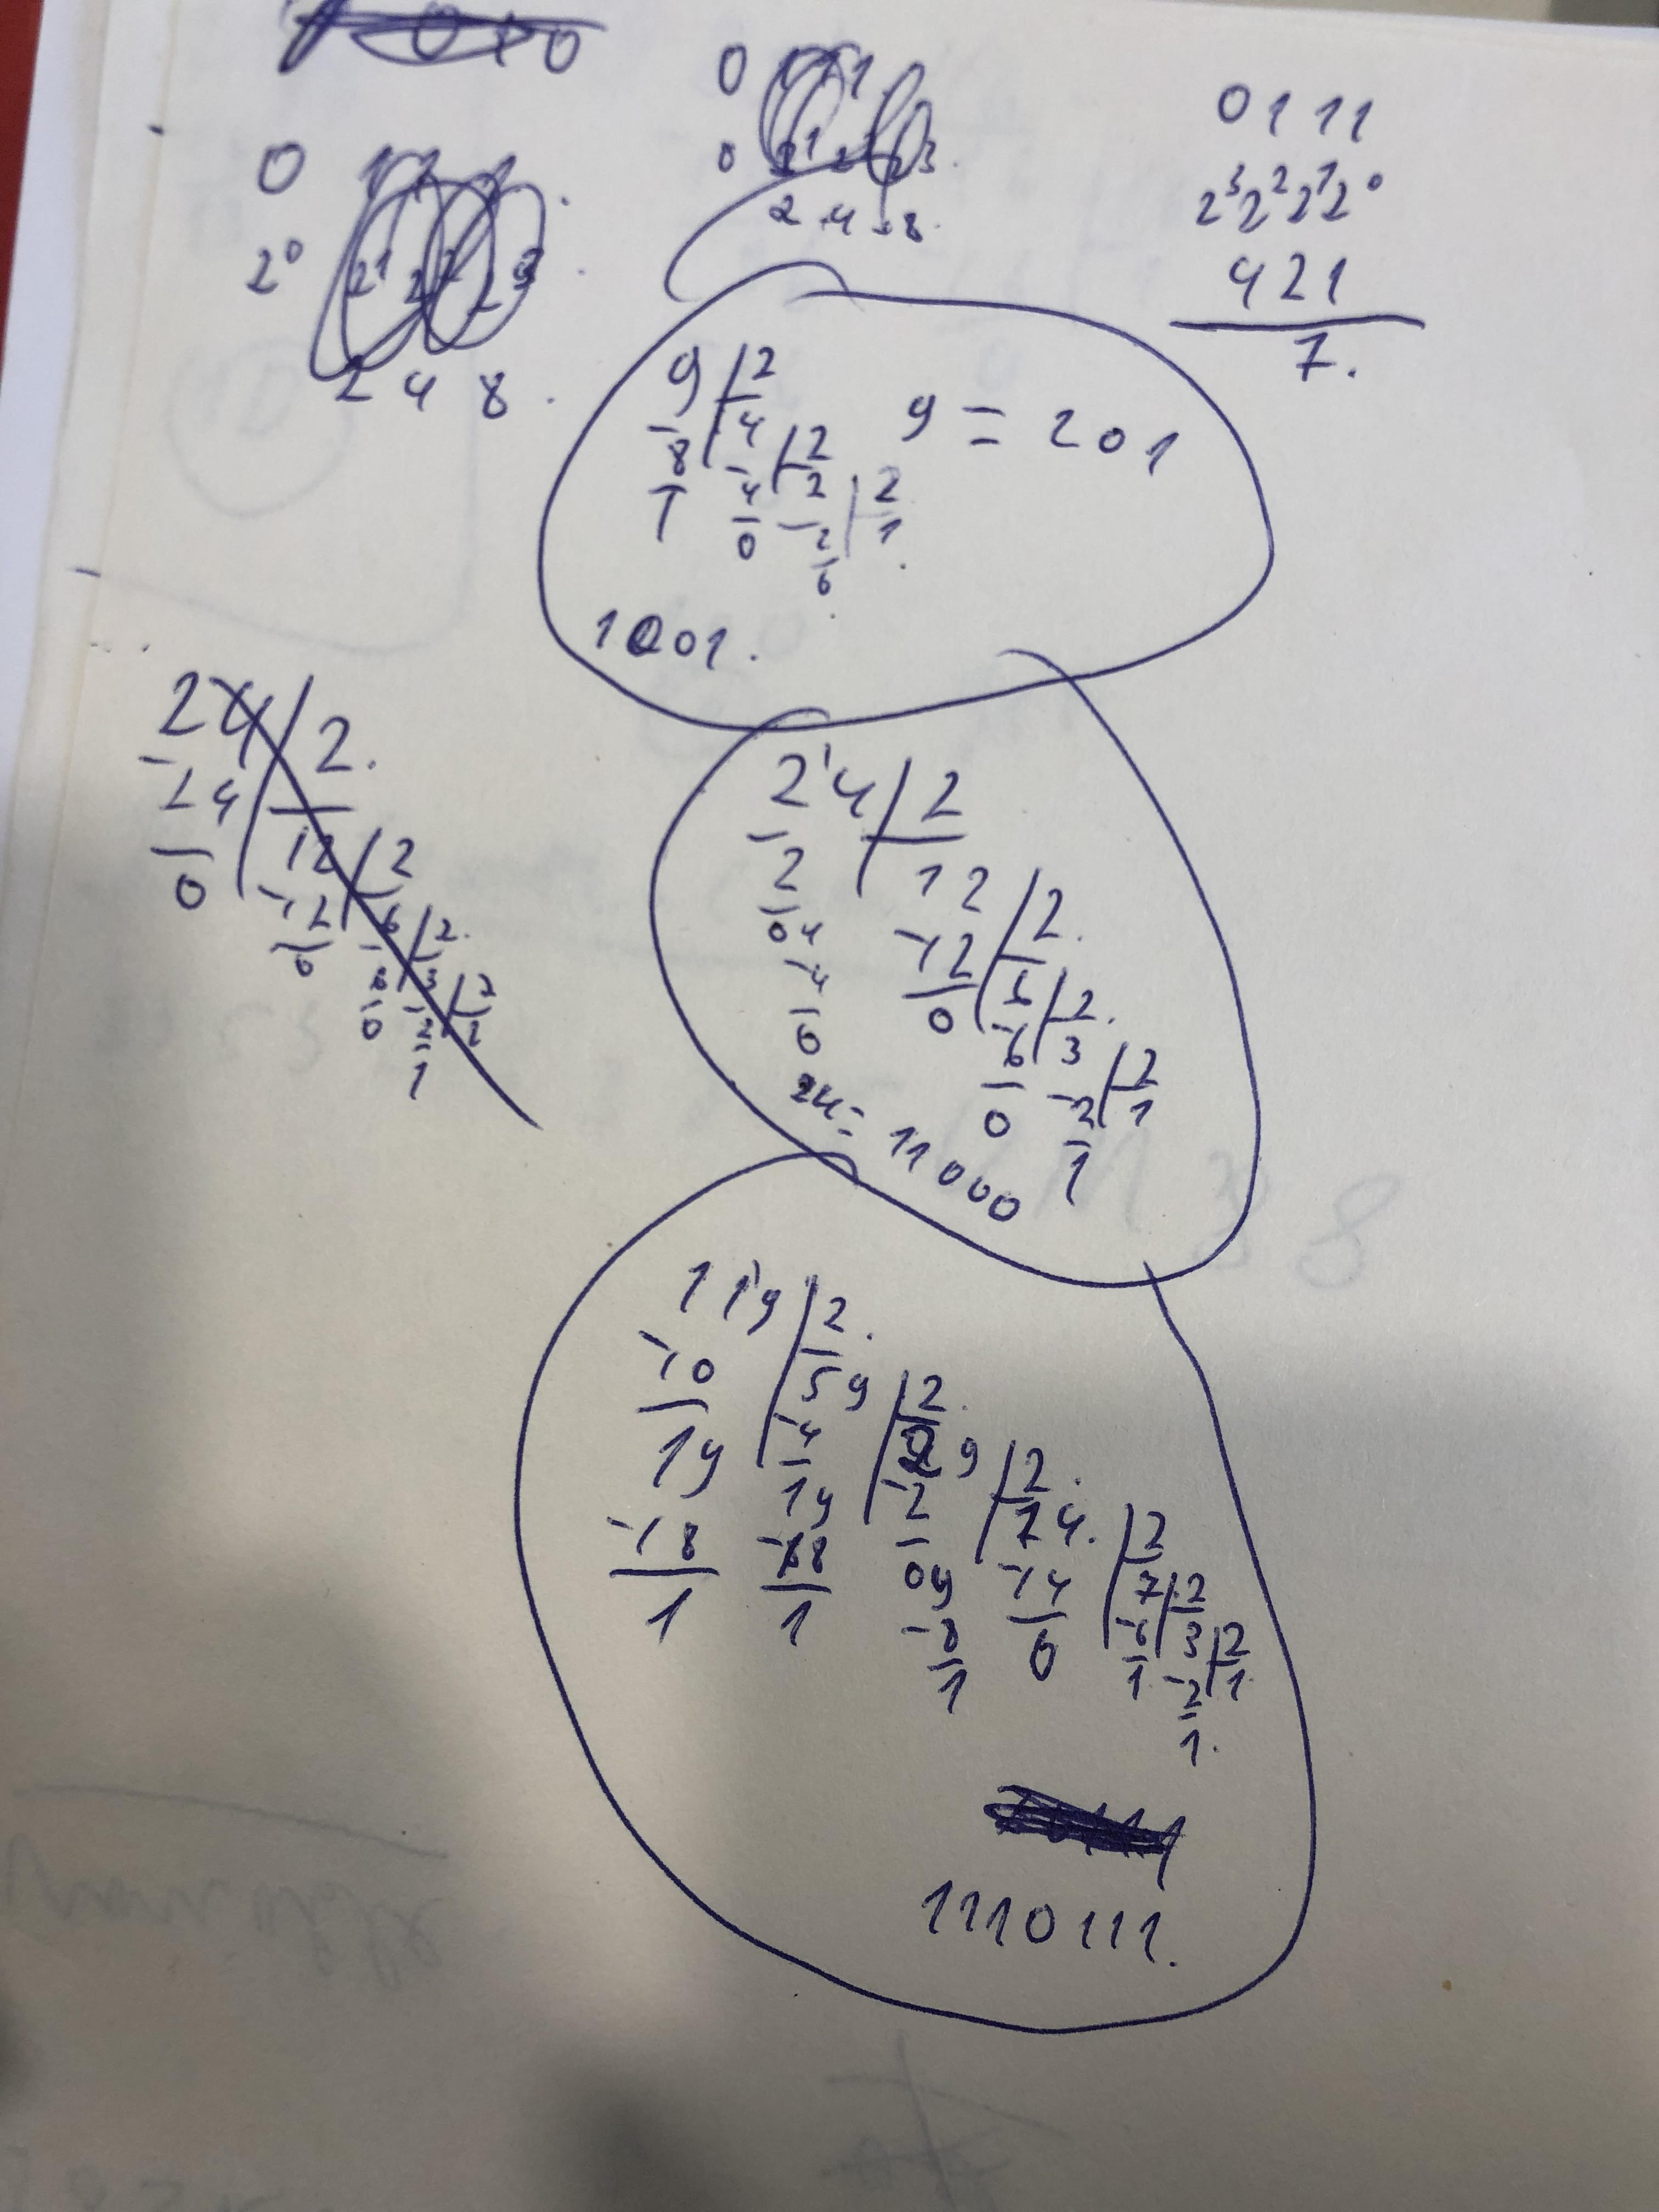 0 1 1 1
2³ 2² 2¹ 2⁰
4 2 1
7.
2⁰
2 4 8.
2 4 8.
9 | 2
-8 | 4 | 2
1 -4 | 2 | 2
0 -2 | 1
0
9 = 201
1001.
24 | 2.
-24 | 12 | 2
0 -12 | 6 | 2.
0 -6 | 3 | 2
0 -2
1
24 | 2
-2 | 12 | 2.
04 -12 | 6 | 2.
-4 0 -6 | 3 | 2
0 0 -2 | 1
1
24 = 11000
119 | 2.
-10 | 59 | 2.
19 -4 | 29 | 2.
-18 19 -2 | 14. | 2
1 -18 09 -14 | 7 | 2
1 -8 0 -6 | 3 | 2
1 1. -2 | 1.
1.
1110111.